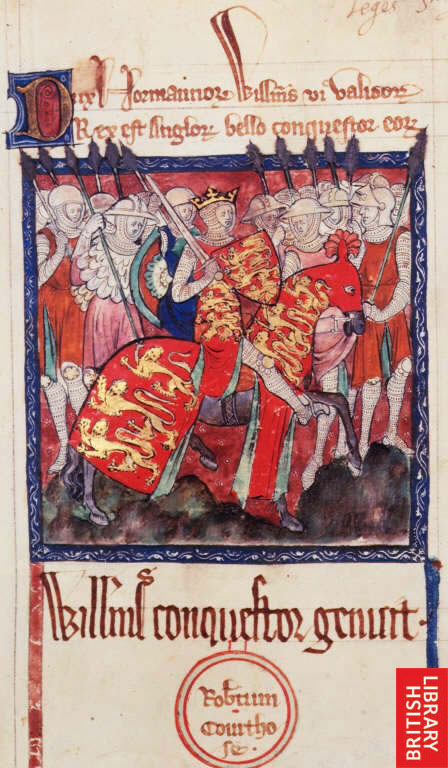 Leges
Dux Normannor Willms vi validor
Rex est Anglor bello conquestor eor
Willms conquestor genuit.
Robtum
Courtho
se.
BRITISH
LIBRARY